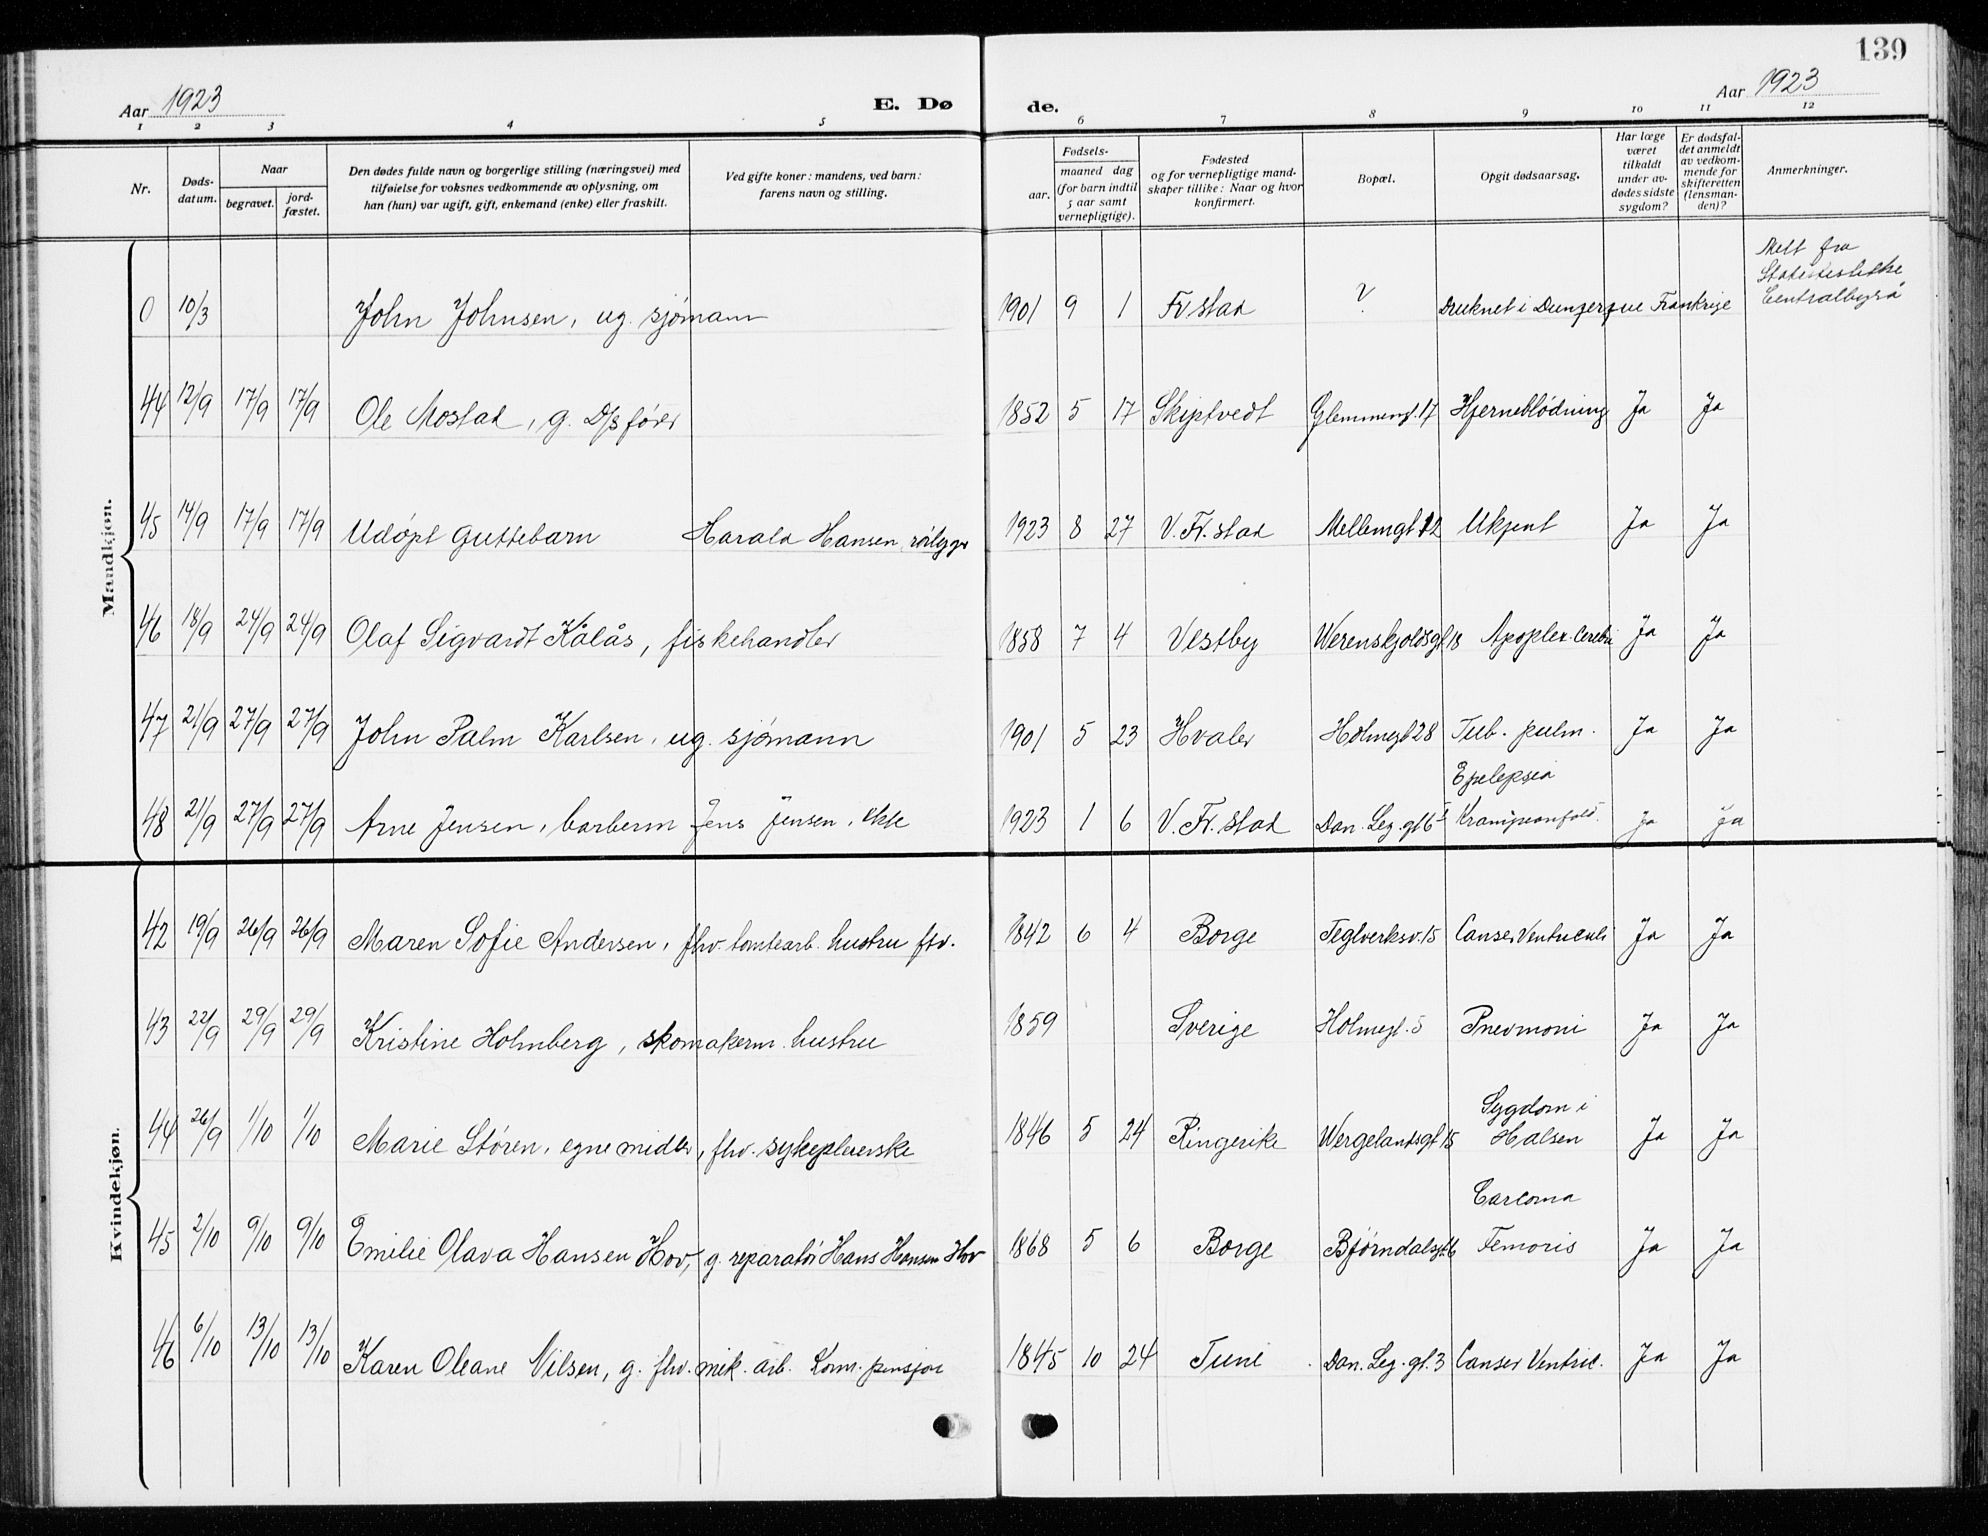 139
Aar 1923
E. Dø
de.
Aar 1923
1 2 3 4 5 6 7 8 9 10 11 12
Nr.
Døds-
datum.
Naar
begravet.
jord-
fæstet.
Den dødes fulde navn og borgerlige stilling (næringsvei) med
tilføielse for voksnes vedkommende av oplysning, om
han (hun) var ugift, gift, enkemand (enke) eller fraskilt.
Ved gifte koner: mandens, ved barn:
farens navn og stilling.
Fødsels-
aar.
maaned dag
(for barn indtil
5 aar samt
vernepligtige).
Fødested
og for vernepligtige mand-
skaper tillike: Naar og hvor
konfirmert.
Bopæl.
Opgit dødsaarsag.
Har læge
været
tilkaldt
under av-
dødes sidste
sygdom?
Er dødsfal-
det anmeldt
av vedkom-
mende for
skifteretten
(lensman-
den)?
Anmerkninger.
Mandkjøn.
0 10/3 John Johnsen, ug. sjømann 1901 9 1 Fr stad ? Druknet i Dunqerque Frankrige
Melt fra
Statistiske
Centralbyrå
44 12/9 17/9 17/9 Ole Mostad, g. D/s fører 1852 5 17 Skiptvedt Glemmengt. 17 Hjerneblödning Ja Ja
45 14/9 17/9 17/9 Udöpt guttebarn Harald Hansen, rørlegger 1923 8 27 V. Fr. stad Mellemgt 12 Ukjent Ja Ja
46 18/9 24/9 24/9 Olaf Sigvardt Kålås, fiskehandler 1858 7 4 Vestby Werenskjoldsgt 18 Apoplex. Cerebri Ja Ja
47 21/9 27/9 27/9 John Palm Karlsen, ug. sjømann 1901 5 23 Hvaler Holmegt 28 Tub. pulm. Ja Ja
48 21/9 27/9 27/9 Arne Jensen, barberm Jens Jensen, ekte 1923 1 6 V. Fr. stad Dan. Leg. gt 6 I
Epelepsia
Krampeanfald. Ja Ja
Kvindekjøn.
42 19/9 26/9 26/9 Maren Sofie Andersen, fhv. tomtearb. hustru fhv. 1842 6 4 Borge Teglverksv. 15 Canser Ventriculi Ja Ja
43 22/9 29/9 29/9 Kristine Holmberg, skomakerm. hustru 1859 Sverige Holmegt. 5 Pnevmoni Ja Ja
44 26/9 1/10 1/10 Marie Stören, egne midler, fhv. sykepleierske 1846 5 24 Ringerike Wergelandsgt 15
Sygdom i
Halsen Ja Ja
45 2/10 9/10 9/10 Emilie Olava Hansen Hov, g. reparatör Hans Hansen Hov 1868 5 6 Borge Bjørndalsgt. 6
Carcoma
Femoris Ja Ja
46 6/10 13/10 13/10 Karen Oleane Nilsen, g. fhv. mek. arb. Kom. pensjon 1845 10 24 Tune Dan. Leg. gt. 3 Canser Ventric. Ja Ja